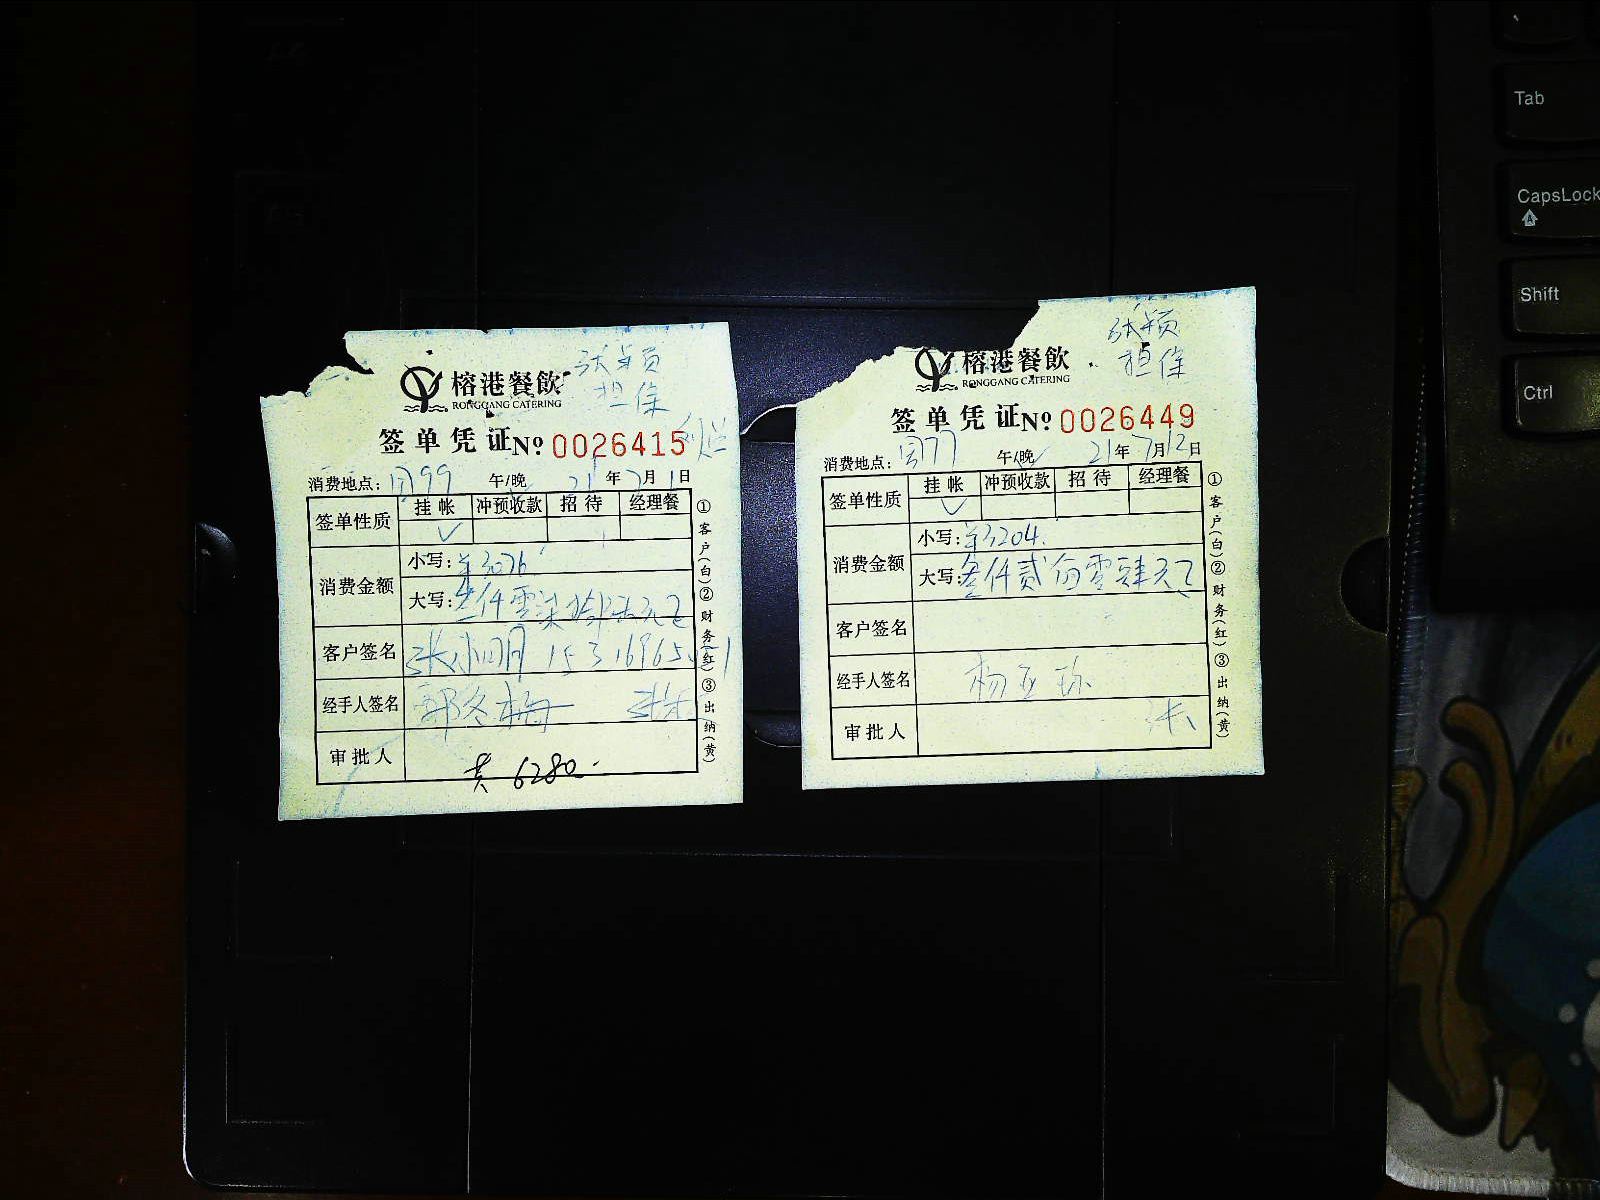 榕港餐飲
RONGGANG CATERING
担保
签单凭证 № 0026415
消费地点: 午/晚 21年7月1日
签单性质 挂帐 冲预收款 招待 经理餐
✓
消费金额 小写: 3076
大写: 叁仟零柒拾陆元
客户签名 张小明
经手人签名 郭冬梅
审批人
共 6280.
①客户(白)②财务(红)③出纳(黄)
张颖
担保
榕港餐飲
RONGGANG CATERING
签单凭证 № 0026449
消费地点: 午/晚 21年7月12日
签单性质 挂帐 冲预收款 招待 经理餐
✓
消费金额 小写: 3204.
大写: 叁仟贰佰零肆元
客户签名
经手人签名 杨亚珍
审批人
①客户(白)②财务(红)③出纳(黄)
Tab
CapsLock
A
Shift
Ctrl